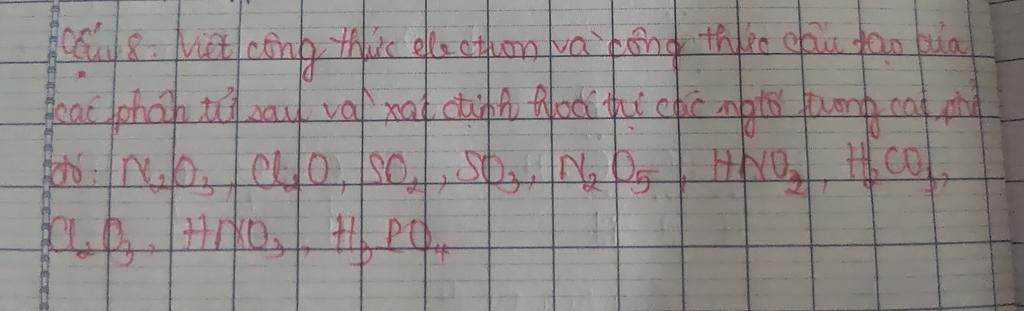 Câu 8: Viết công thức election và công thức cấu tạo của
các phân tử sau và xác định hoá trị các ngtố trong các ptử
đó: N₂O₃, Cl₂O, SO₂, SO₃, N₂O₅, HNO₂, H₂CO₃,
Cl₂O₃, HNO₃, H₃PO₄